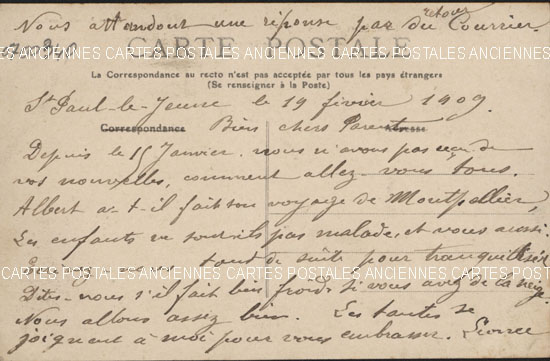 Nous attendont une réponse par du Courrier
retour
CARTE POSTALE
La Correspondance au recto n'est pas acceptée par tous les pays étrangers
(Se renseigner à la Poste)
St Paul-le-Jeune le 19 février 1909
Correspondance Bien chers Parents
Depuis le 15 Janvier nous n'avons pas reçu de
vos nouvelles, comment allez-vous tous.
Albert a-t-il fait son voyage de Montpellier,
Les enfants ne sont-ils pas malade, et vous aussi.
tout de suite pour tranquilliser
CARTES POSTALES ANCIENNES CARTES POSTALES ANCIENNES CARTES POSTALES
Dites-nous s'il fait bien froid si vous avez de la neige
Nous allons assez bien. Les tantes se
joignent à moi pour vous embrasser.